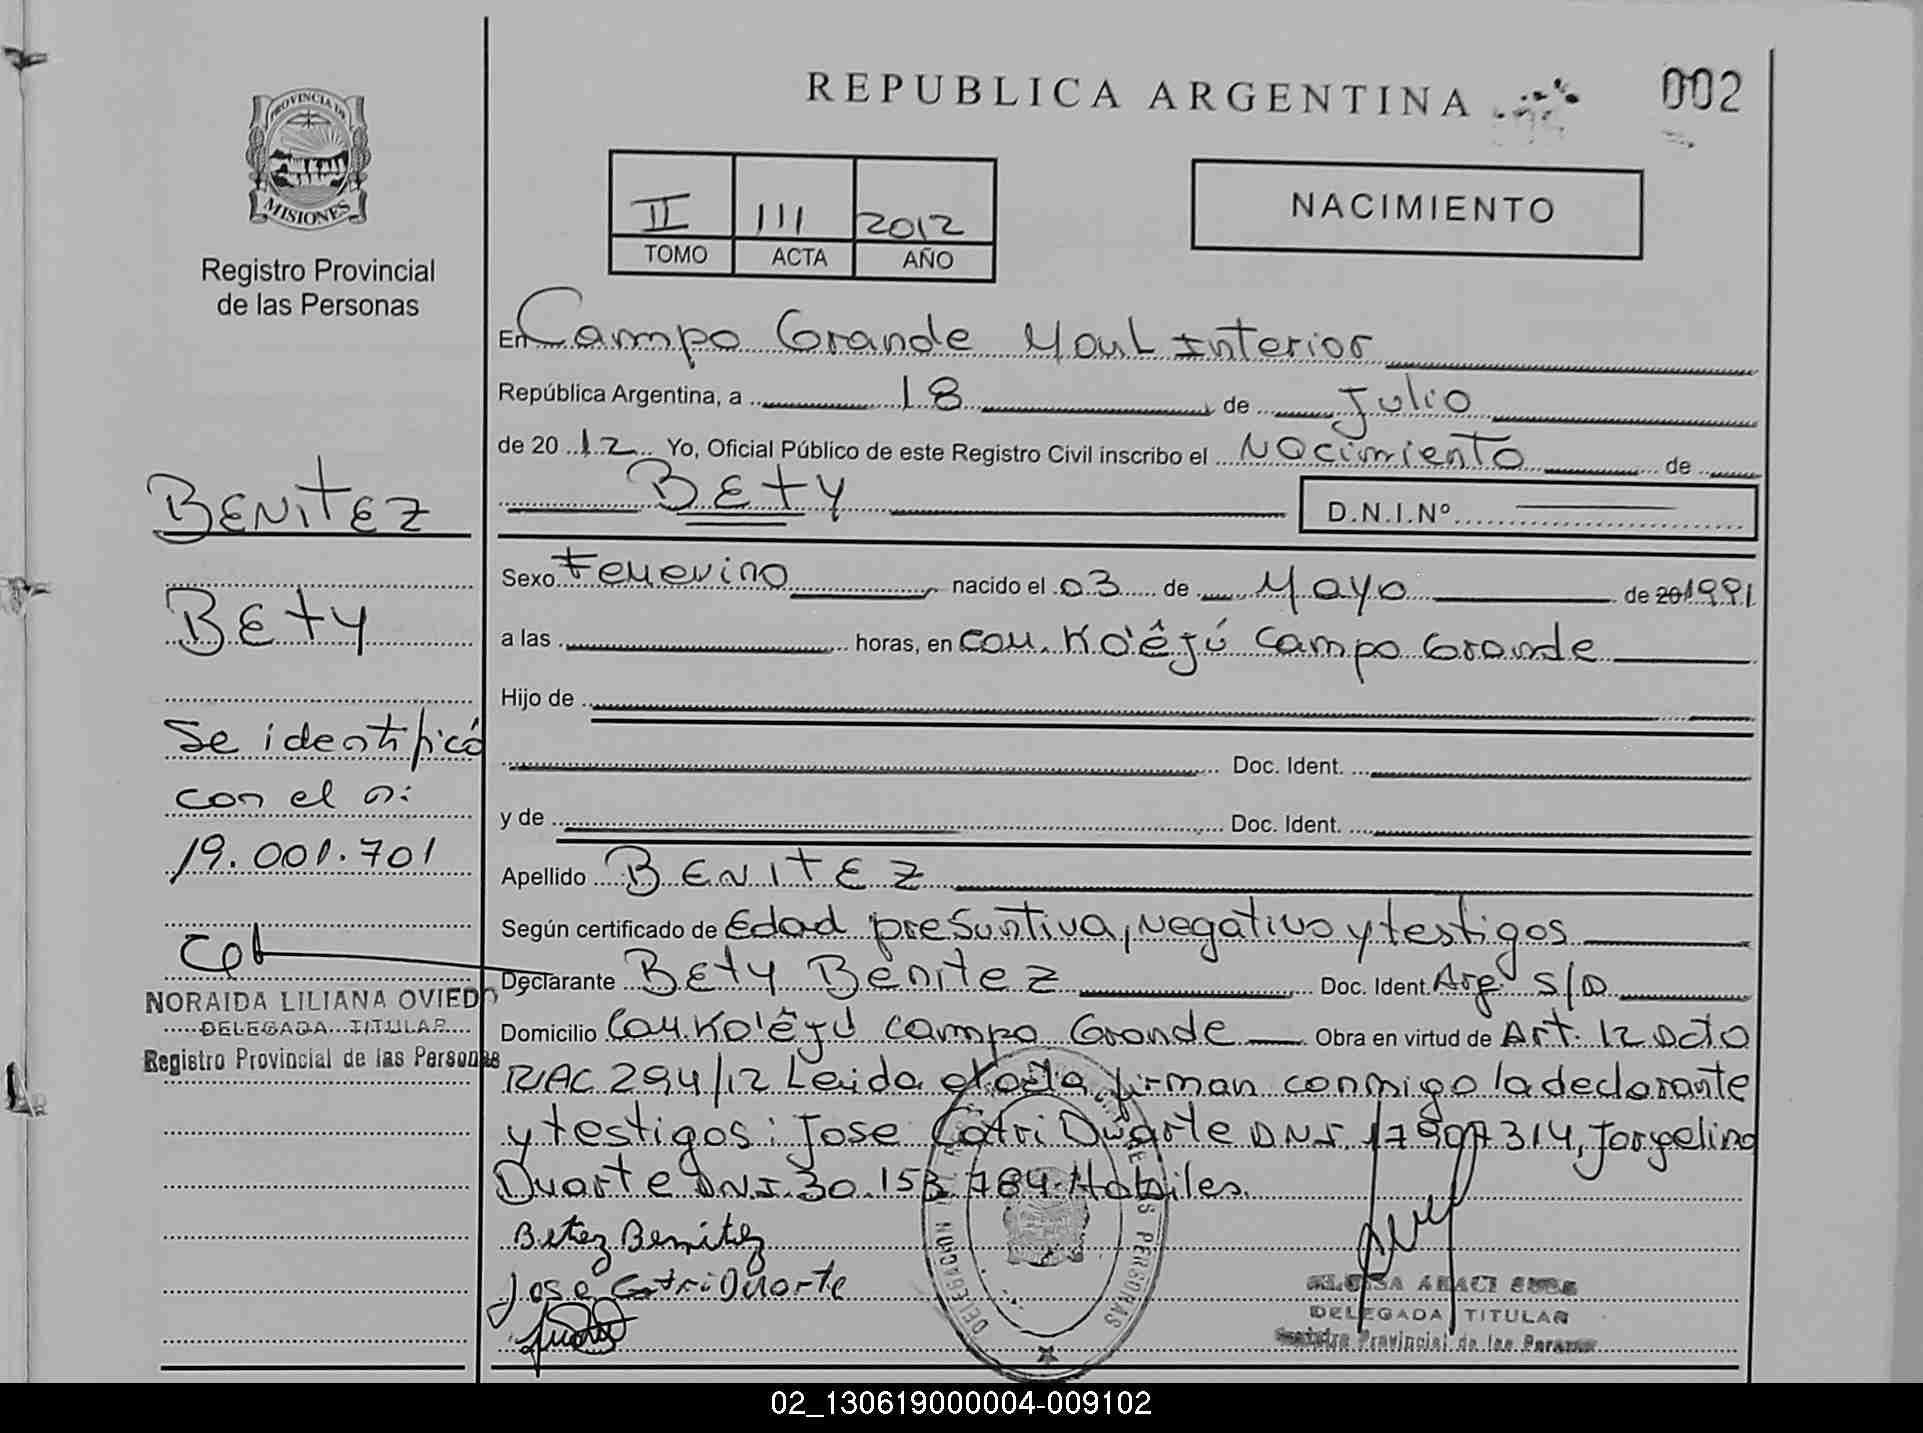 REPUBLICA ARGENTINA
002
PROVINCIA DE
MISIONES
Registro Provincial
de las Personas
II 111 2012
TOMO ACTA AÑO
NACIMIENTO
En Campo Grande Interior
República Argentina, a 18 de Julio
de 2012 Yo, Oficial Público de este Registro Civil inscribo el Nacimiento de
Bety
D.N.I.Nº
Sexo Femenino nacido el 03 de Mayo de 20 1991
a las horas, en Com. Ko'êjú Campo Grande
Hijo de
Doc. Ident.
y de Doc. Ident.
Apellido BENITEZ
Según certificado de Edad presuntiva, negativo y testigos
Declarante Bety Benitez Doc. Ident. Arg S/D
Domicilio Com. Ko'êjú Campo Grande Obra en virtud de Art. 12 Dcto
294/12 Leida firman conmigo la declarante
y testigos: Jose Catri Duarte DNI. 314, Jorgelina
Duarte DNI. 30.153.784. Habiles.
Betez Benitez
Jose Catri Duarte
BENITEZ
BETY
Se identificó
con el n:
19.001.701
NORAIDA LILIANA OVIEDO
DELEGADA TITULAR
Registro Provincial de las Personas
DELEGADA TITULAR
Provincial de las
PERSONAS
02_130619000004-009102